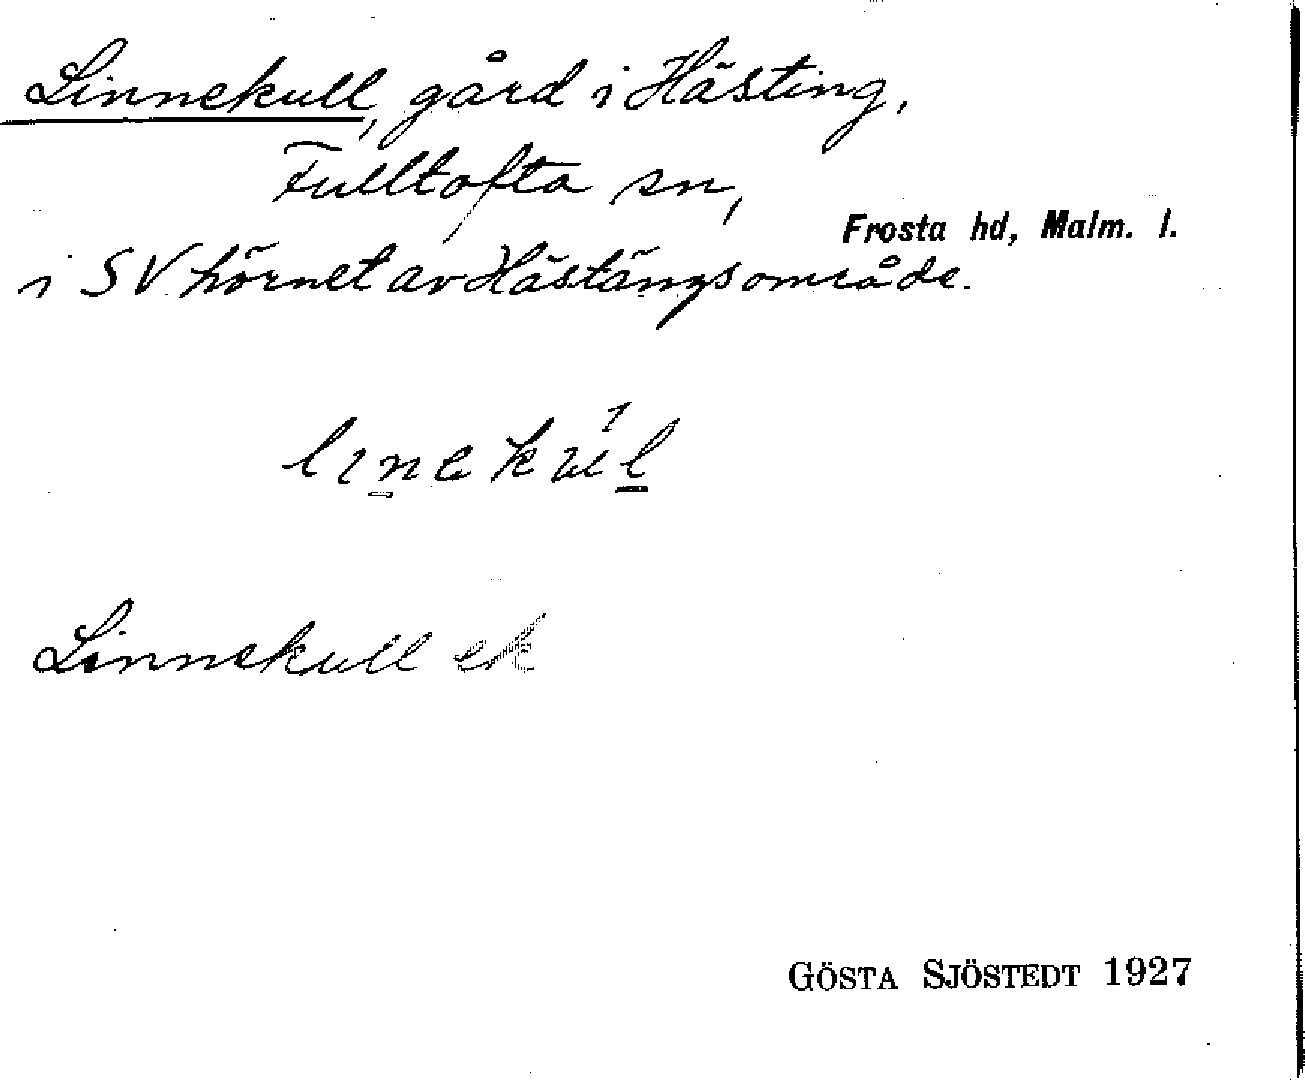 Linnekull, gård i Hästing,
Fulltofta sn,
Frosta hd, Malm. l.
i SV hörnet av Hästängsområde.
linekul
Linnekull ek
GÖSTA SJÖSTEDT 1927